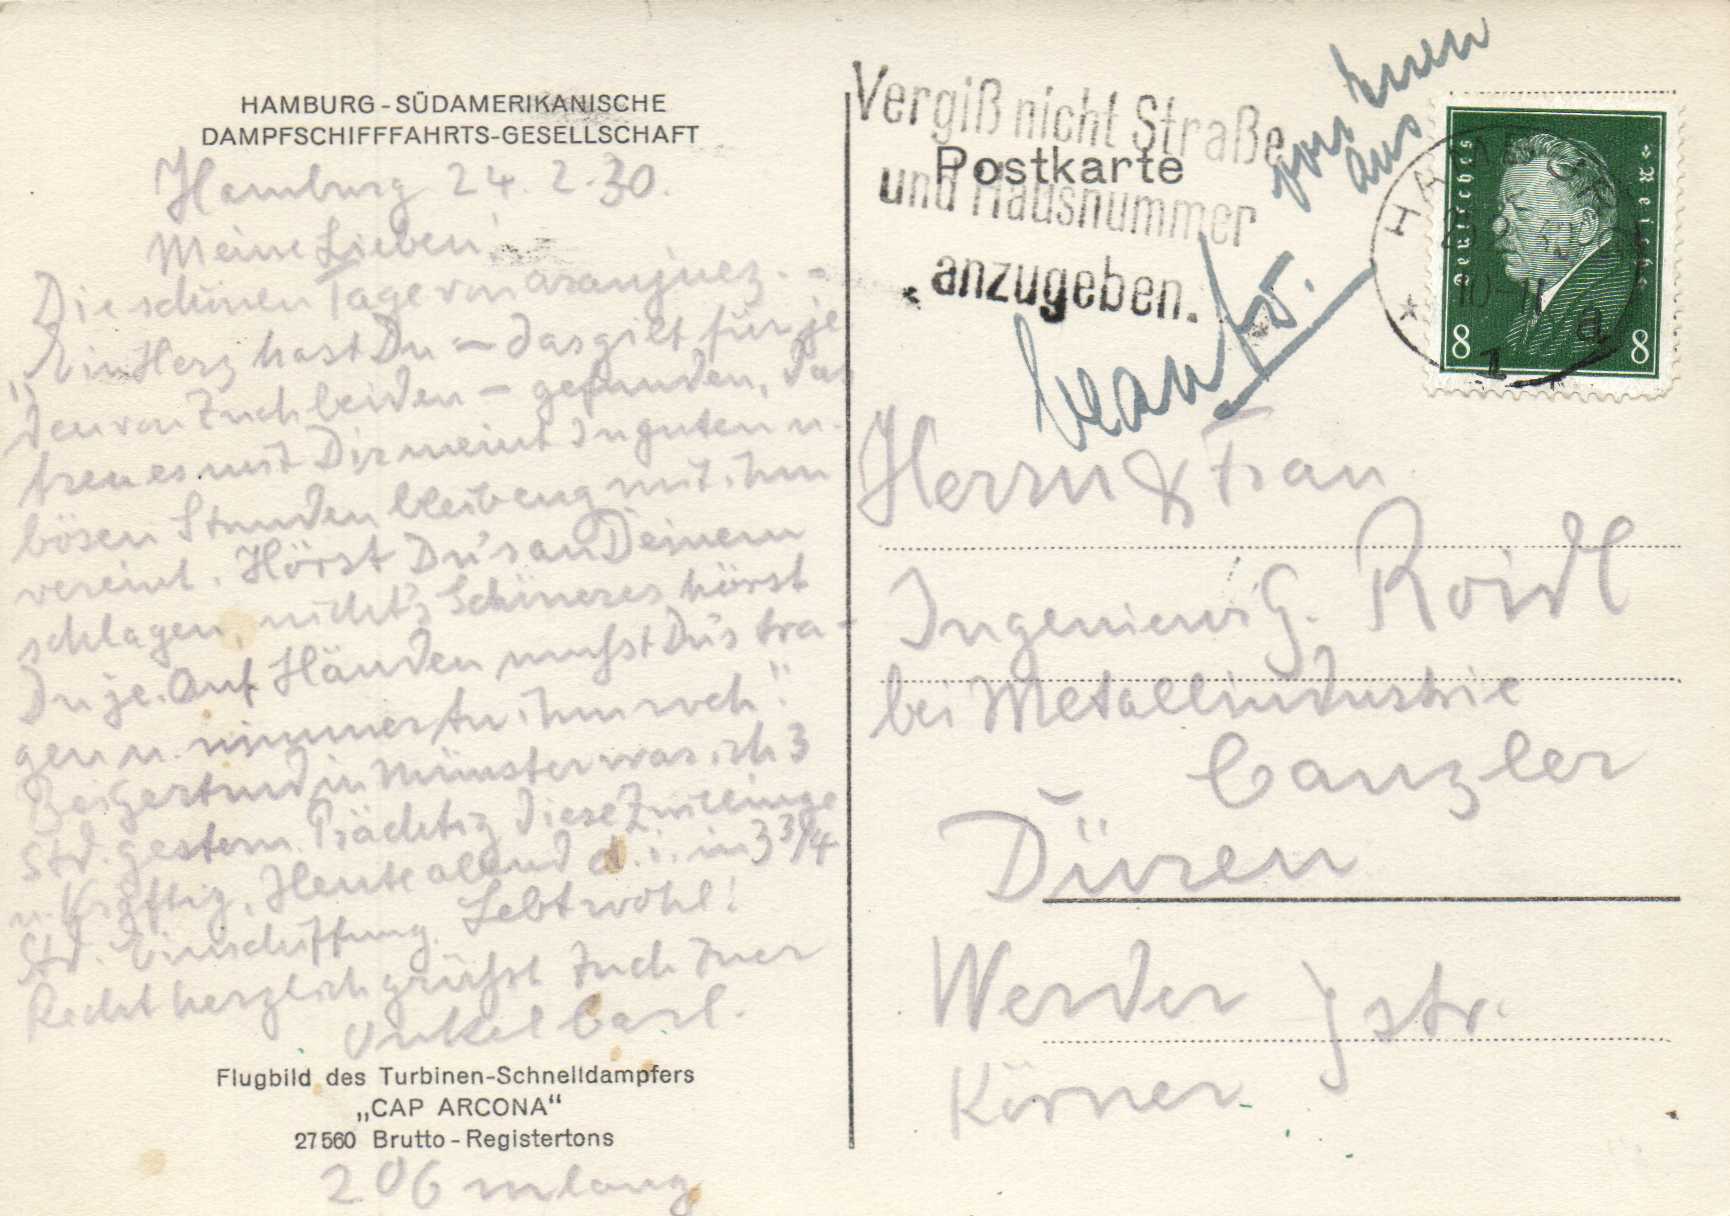 HAMBURG-SÜDAMERIKANISCHE
DAMPFSCHIFFFAHRTS-GESELLSCHAFT
Hamburg 24.2.30.
Meine Lieben!
Die schönen Tage von Aranjuez. –
"Ein Herz hast Du – das gilt für je
den von Euch beiden – gefunden, das
treu es mit Dir meint In guten u.
bösen Stunden bleib eng mit ihm
vereint. Hörst Du's an Deinem
schlagen, nicht's Schöneres hörst
Du je. Auf Händen mußst Du's tra-
gen u. nimmer tu ihm weh".
Bei Gertrud in Münster war ich 3
Std. gestern. Prächtig diese Zwillinge
u. Kräftig. Heute abend d.i. in 3 3/4
Std. Einschiffung. Lebt wohl!
Recht herzlich grüßst Euch Euer
Onkel Carl.
Flugbild des Turbinen-Schnelldampfers
„CAP ARCONA“
27560 Brutto-Registertons
206 m lang
Vergiß nicht Straße
und Hausnummer
anzugeben.
Postkarte
aus
Deutsches Reich
8 8
HAMBURG
10-11
* 1 a
Herrn & Frau
Ingenieur G. Roidl
bei Metallindustrie
Canzler
Düren
Werder } str.
Körner